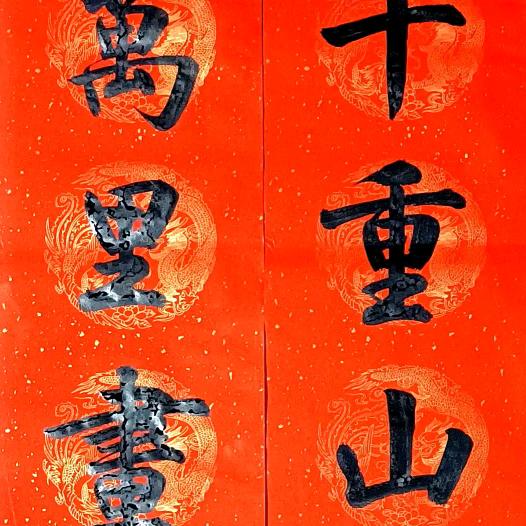 千重山
萬里畫